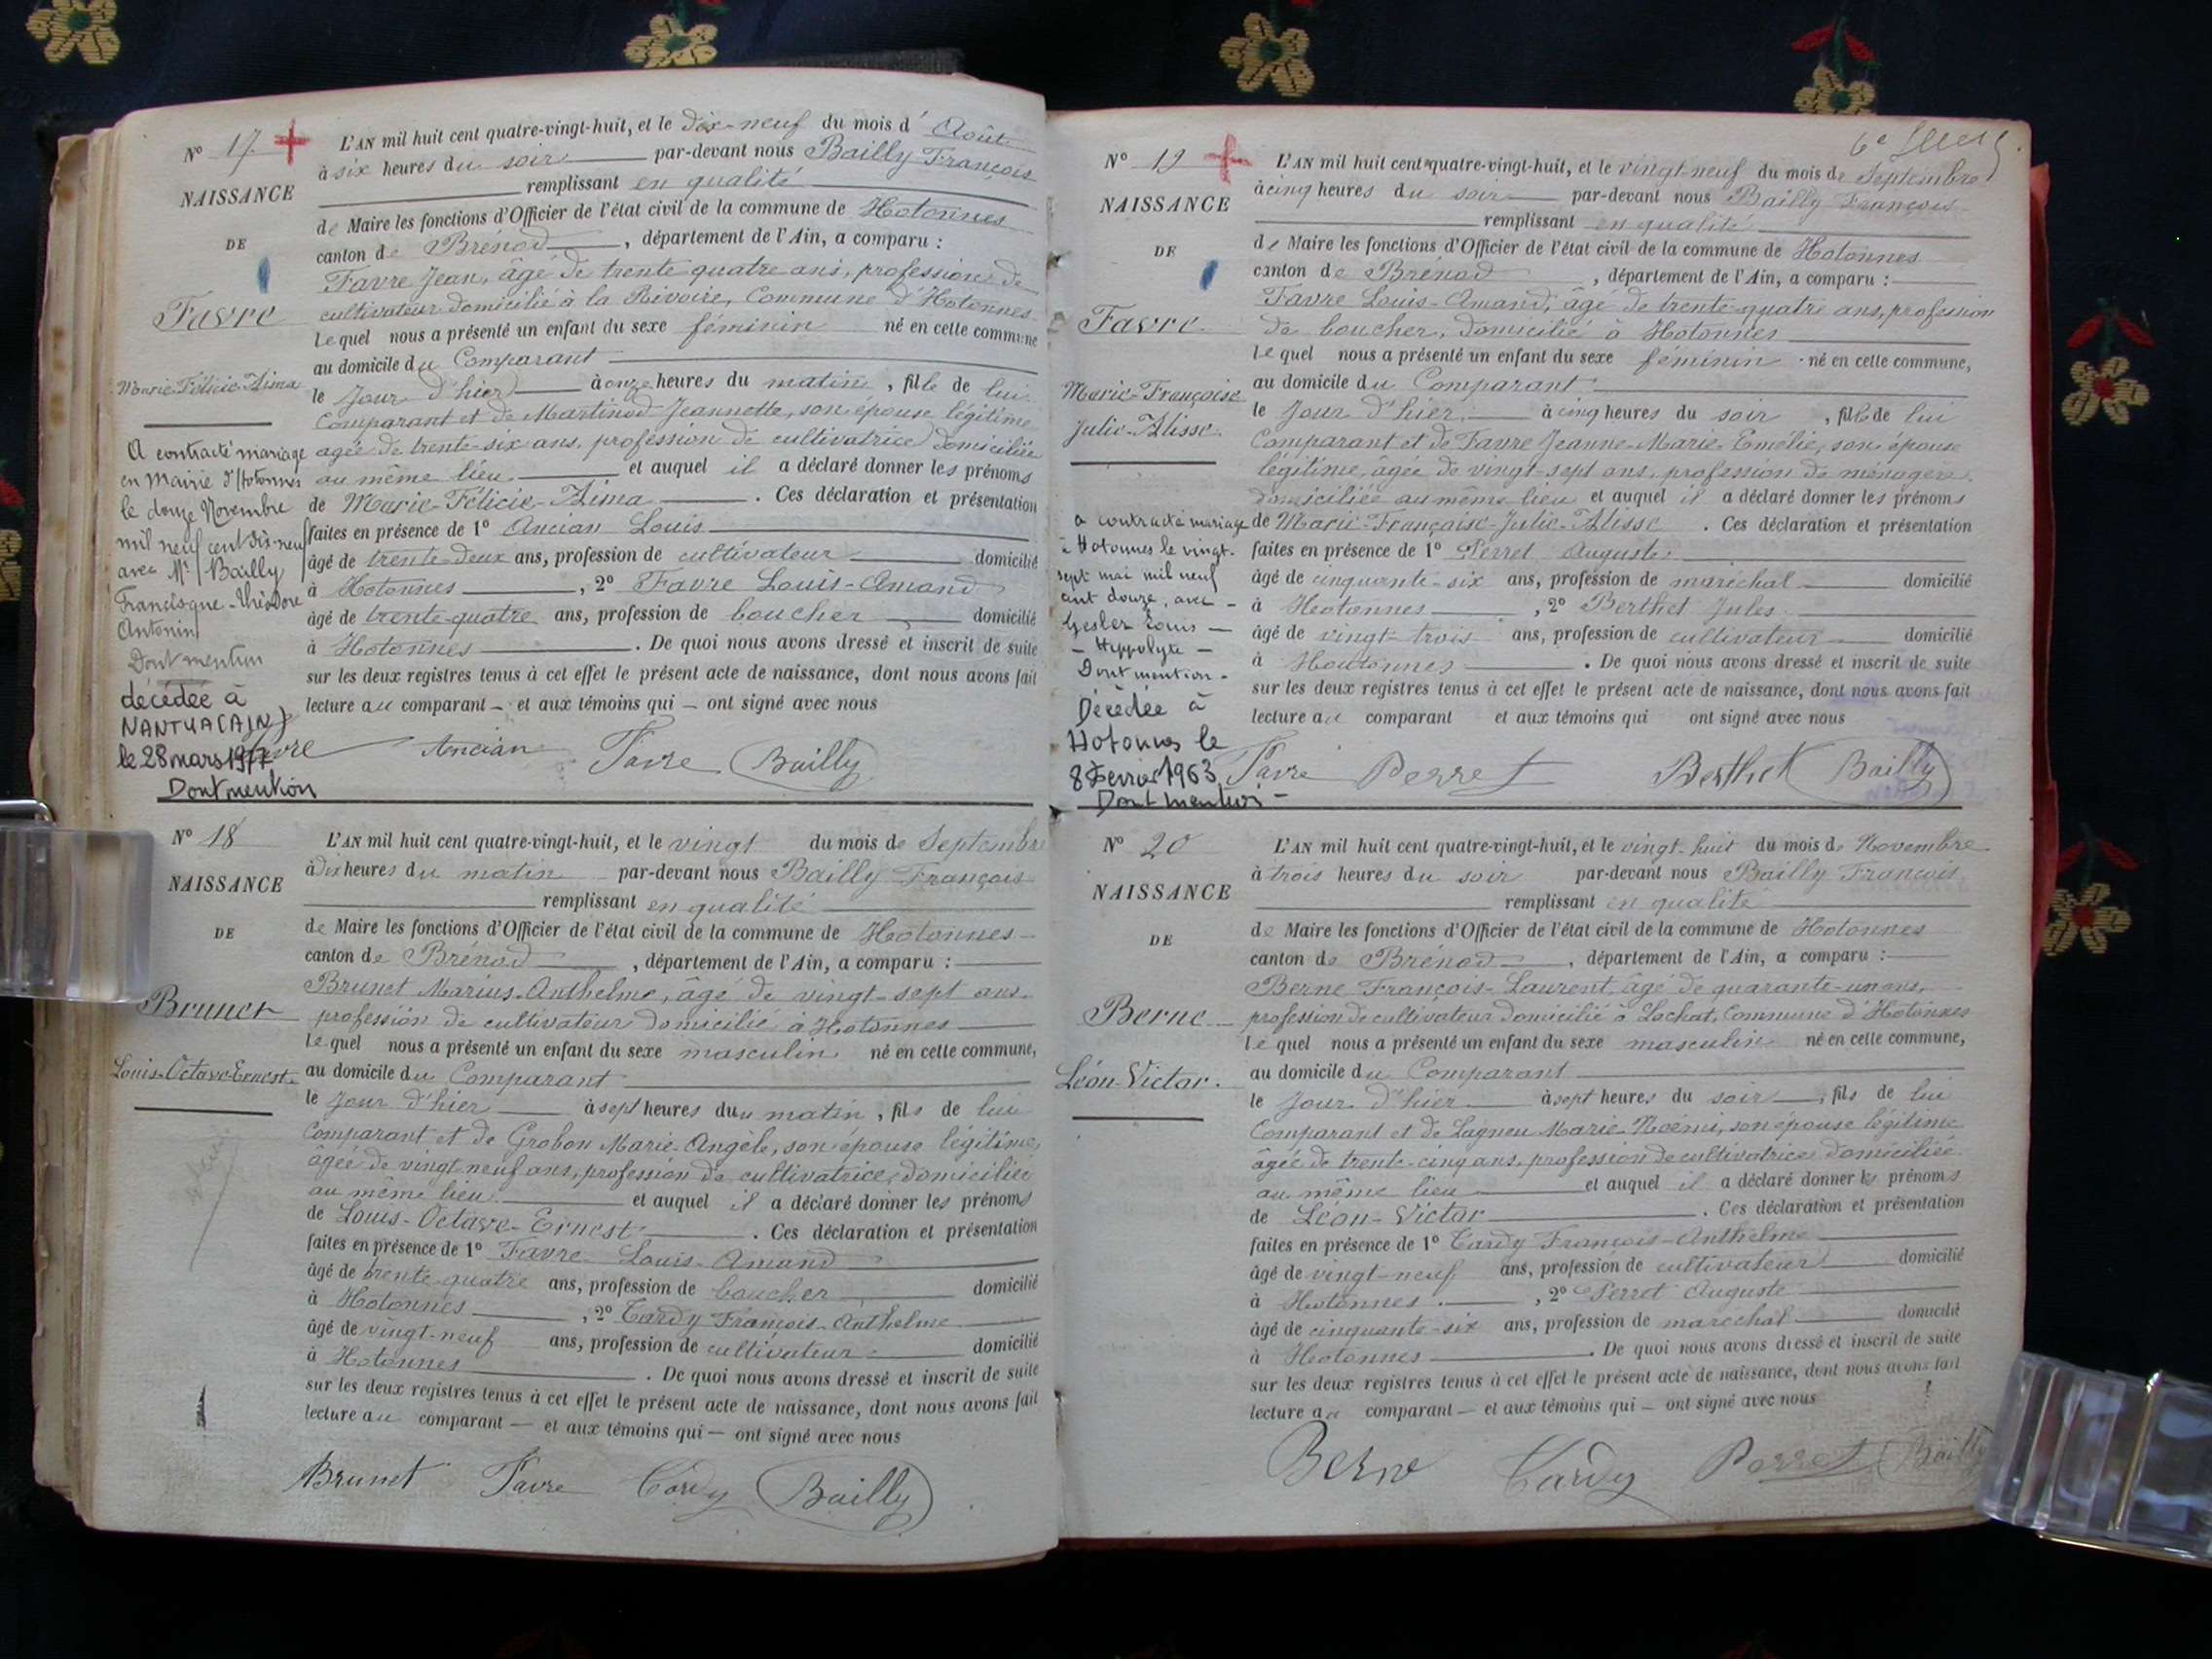 N° 17.
NAISSANCE
DE
Favre
Marie-Félicie-Alima
A contracté mariage
en Mairie d'Hotonnes
le douze Novembre
mil neuf cent dix-neuf
avec Mr Bailly
Francisque-Théodore
Antonin
Dont mention
décédée à
NANTUA (AIN)
le 28 mars 1977
Dont mention
L'AN mil huit cent quatre-vingt-huit, et le dix-neuf du mois d'Août
à six heures du soir par-devant nous Bailly François
remplissant en qualité
de Maire les fonctions d'Officier de l'état civil de la commune de Hotonnes
canton de Brénod, département de l'Ain, a comparu :
Favre Jean, âgé de trente quatre ans, profession de
cultivateur domicilié à la Rivoire, Commune d'Hotonnes
Lequel nous a présenté un enfant du sexe féminin né en cette commune
au domicile du Comparant
le Jour d'hier à onze heures du matin, fille de lui
Comparant et de Martinod Jeannette, son épouse légitime
agée de trente-six ans, profession de cultivatrice domiciliée
au même lieu et auquel il a déclaré donner les prénoms
de Marie-Félicie-Alima. Ces déclaration et présentation
faites en présence de 1° Ancian Louis
âgé de trente-deux ans, profession de cultivateur domicilié
à Hotonnes, 2° Favre Louis-Amand
âgé de trente-quatre ans, profession de boucher domicilié
à Hotonnes. De quoi nous avons dressé et inscrit de suite
sur les deux registres tenus à cet effet le présent acte de naissance, dont nous avons fait
lecture au comparant — et aux témoins qui — ont signé avec nous
Favre Ancian Favre Bailly
N° 18
NAISSANCE
DE
Brunet
Louis-Octave-Ernest
L'AN mil huit cent quatre-vingt-huit, et le vingt du mois de Septembre
à dix heures du matin par-devant nous Bailly François
remplissant en qualité
de Maire les fonctions d'Officier de l'état civil de la commune de Hotonnes
canton de Brénod, département de l'Ain, a comparu :
Brunet Marius-Anthelme, âgé de vingt-sept ans
profession de cultivateur domicilié à Hotonnes
Lequel nous a présenté un enfant du sexe masculin né en cette commune,
au domicile du Comparant
le Jour d'hier à sept heures du matin, fils de lui
Comparant et de Grobon Marie-Angèle, son épouse légitime,
agée de vingt neuf ans, profession de cultivatrice, domiciliée
au même lieu. et auquel il a déclaré donner les prénoms
de Louis-Octave-Ernest. Ces déclaration et présentation
faites en présence de 1° Favre Louis-Amand
âgé de trente-quatre ans, profession de boucher domicilié
à Hotonnes, 2° Tardy François-Anthelme
âgé de vingt-neuf ans, profession de cultivateur domicilié
à Hotonnes. De quoi nous avons dressé et inscrit de suite
sur les deux registres tenus à cet effet le présent acte de naissance, dont nous avons fait
lecture au comparant — et aux témoins qui — ont signé avec nous
Brunet Favre Tardy Bailly
N° 19
NAISSANCE
DE
Favre.
Marie-Françoise
Julie-Alisse.
a contracté mariage
à Hotonnes le vingt-
sept mai mil neuf
cent douze, avec
Gesler Louis
Hippolyte
Dont mention.
Décédée à
Hotonnes le
8 Février 1963
Dont mention
L'AN mil huit cent quatre-vingt-huit, et le vingt-neuf du mois de Septembre
à cinq heures du soir par-devant nous Bailly François
remplissant en qualité
de Maire les fonctions d'Officier de l'état civil de la commune de Hotonnes
canton de Brénod, département de l'Ain, a comparu :
Favre Louis-Amand, âgé de trente-quatre ans, profession
de boucher, domicilié à Hotonnes
Lequel nous a présenté un enfant du sexe féminin né en cette commune,
au domicile du Comparant
le Jour d'hier à cinq heures du soir, fille de lui
Comparant et de Favre Jeanne-Marie-Emélie, son épouse
légitime, âgée de vingt-sept ans, profession de ménagère
domiciliée au même lieu et auquel il a déclaré donner les prénoms
de Marie-Françoise-Julie-Alisse. Ces déclaration et présentation
faites en présence de 1° Perret Auguste
âgé de cinquante-six ans, profession de maréchal domicilié
à Hotonnes, 2° Berthet Jules
âgé de vingt-trois ans, profession de cultivateur domicilié
à Houtonnes. De quoi nous avons dressé et inscrit de suite
sur les deux registres tenus à cet effet le présent acte de naissance, dont nous avons fait
lecture au comparant et aux témoins qui ont signé avec nous
Favre Perret Berthet Bailly
N° 20
NAISSANCE
DE
Berne
Léon-Victor.
L'AN mil huit cent quatre-vingt-huit, et le vingt-huit du mois de Novembre
à trois heures du soir par-devant nous Bailly François
remplissant en qualité
de Maire les fonctions d'Officier de l'état civil de la commune de Hotonnes
canton de Brénod, département de l'Ain, a comparu :
Berne François-Laurent, âgé de quarante-un ans,
profession de cultivateur domicilié à Lachat, Commune d'Hotonnes
Lequel nous a présenté un enfant du sexe masculin né en cette commune,
au domicile du Comparant
le Jour d'hier à sept heures du soir, fils de lui
Comparant et de Lagneu Marie-Noémi, son épouse légitime
âgée de trente-cinq ans, profession de cultivatrice domiciliée
au même lieu et auquel il a déclaré donner les prénoms
de Léon-Victor. Ces déclaration et présentation
faites en présence de 1° Tardy François-Anthelme
âgé de vingt-neuf ans, profession de cultivateur domicilié
à Hotonnes, 2° Perret Auguste
âgé de cinquante-six ans, profession de maréchal domicilié
à Hotonnes. De quoi nous avons dressé et inscrit de suite
sur les deux registres tenus à cet effet le présent acte de naissance, dont nous avons fait
lecture au comparant — et aux témoins qui — ont signé avec nous
Berne Tardy Perret Bailly